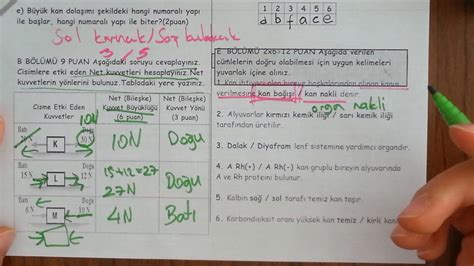 e) Büyük kan dolaşımı şekildeki hangi numaralı yapı
ile başlar, hangi numaralı yapı ile biter?(2puan)
1 2 3 4 5 6
d b f a c e
3 / 5
B BÖLÜMÜ 9 PUAN Aşağıdaki soruyu cevaplayınız.
Cisimlere etki eden Net kuvvetleri hesaplayınız.Net
Kuvvetlerin yönlerini bulunuz. Tabladaki yere yazınız.
Cisme Etki Eden
Kuvvetler
Net (Bileşke)
Kuvvet Büyüklüğü
(6 puan)
Net (Bileşke)
Kuvvet Yönü
(3 puan)
10N
Batı
Doğu
K
30 N
10N
Doğu
Batı
Doğu
15 N
L
12 N
15+12=27
27N
Doğu
Batı
Doğu
6 N
M
4N
Batı
E BÖLÜMÜ 2x6=12 PUAN Aşağıda verilen
cümlelerin doğru olabilmesi için uygun kelimeleri
yuvarlak içine alınız.
1. Kan ihtiyacı olan bireye başkalarından alınan kanın
verilmesine kan bağışı / kan nakli denir.
organ nakli
2. Alyuvarlar kırmızı kemik iliği / sarı kemik iliği
tarafından üretilir.
3. Dalak / Diyafram lenf sistemine yardımcı organdır.
4. A Rh(+) / A Rh(-) kan gruplu bireyin alyuvarında
A ve Rh proteini bulunur.
5. Kalbin sağ / sol tarafı temiz kan taşır.
6. Karbondioksit oranı yüksek kan temiz / kirli